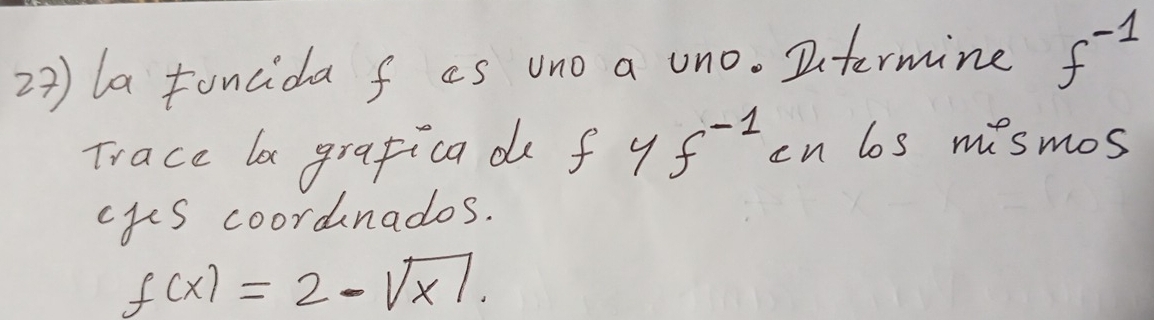 27) La funcida f es uno a uno. Determine f⁻¹
Trace la grafica de f y f⁻¹ en los mismos
ejes coordenados.
f(x) = 2 - √x.